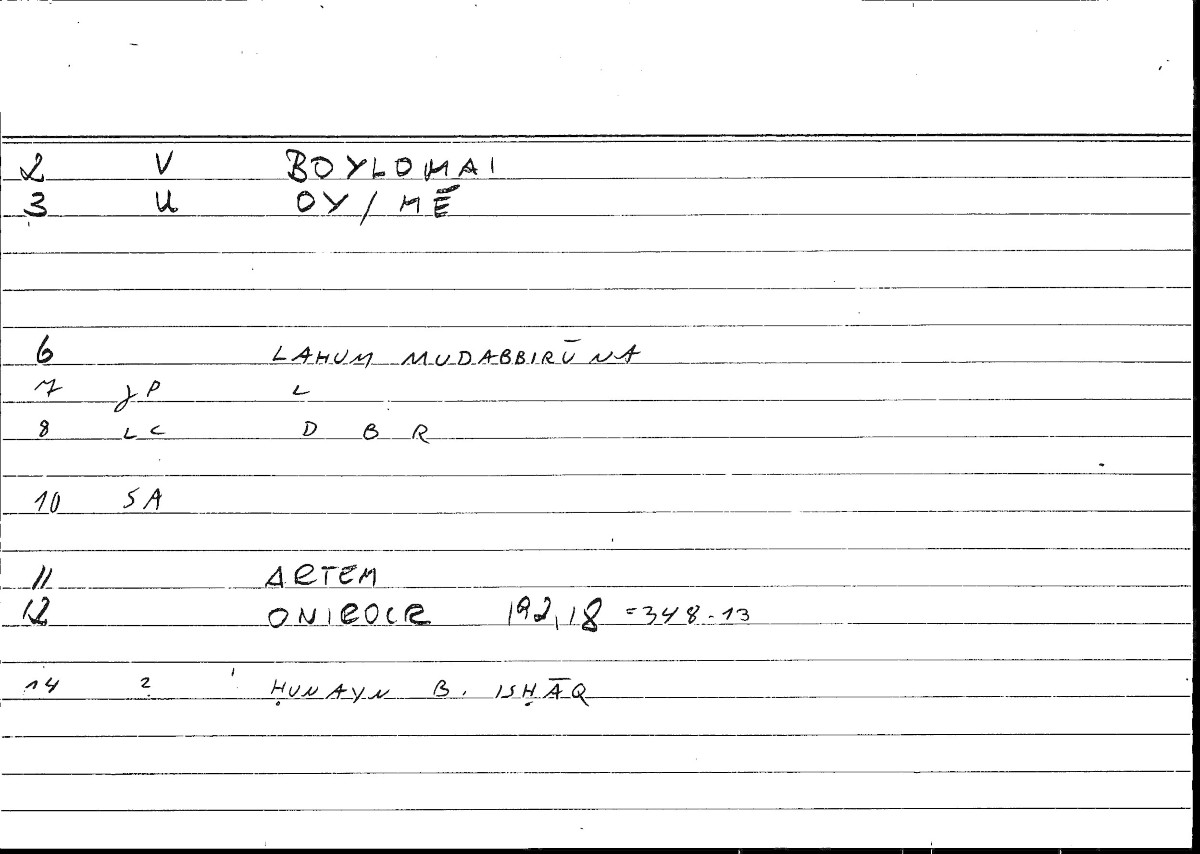 2 V BOYLOMAI
3 U OY/MĒ
6 LAHUM MUDABBIRŪNA
7 JP L
8 LC D B R
10 SA
11 ARTEM
12 ONIROCR 192,18 =348-13
14 2 ḤUNAYN B. ISḤĀQ